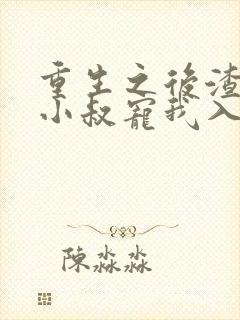 重生之後渣
小叔寵我入
陳淼淼